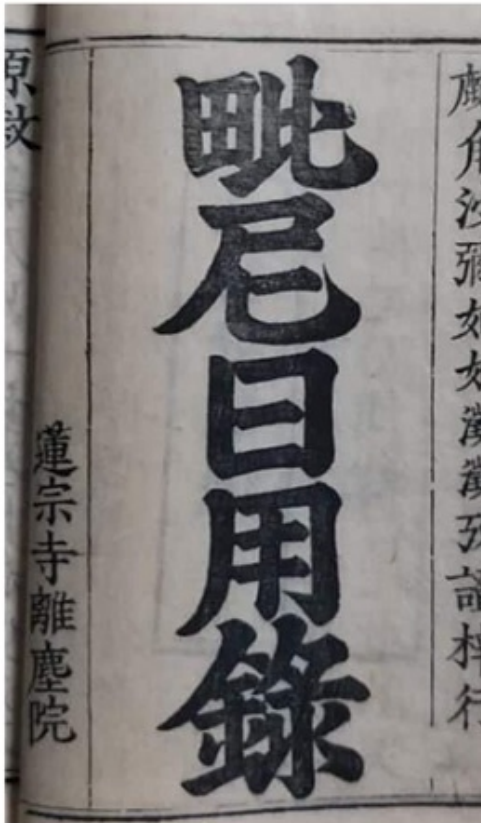 角沙彌如如梓行
毗尼日用錄
蓮宗寺離塵院
原